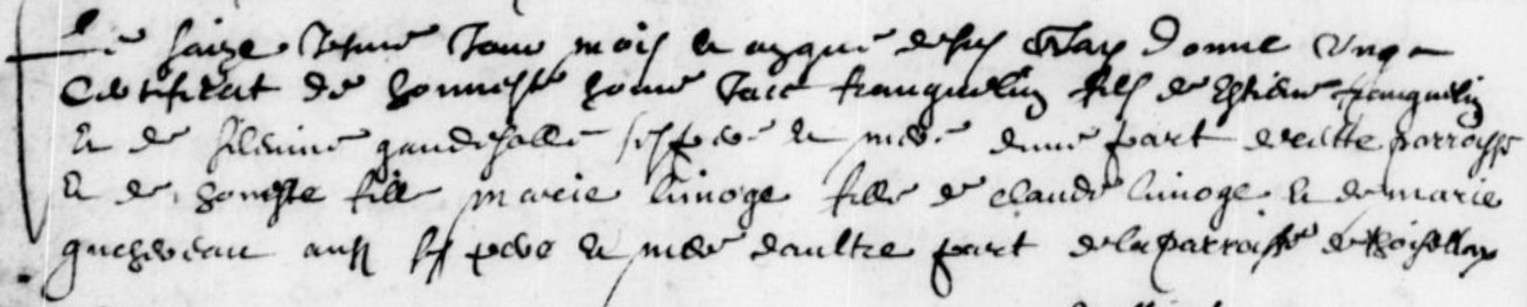 Le saize iesme Jour mois et an que dessus Jay donne ung
Certifficat de honneste homme Jacc franquelin fils de Estienne franquelin
et de filenine ses pere et mere dune part de cette parroisse
et de honneste fille marie limoge fille de claude limoge et de marie
aussi ses pere et mere daultre part de la parroisse de